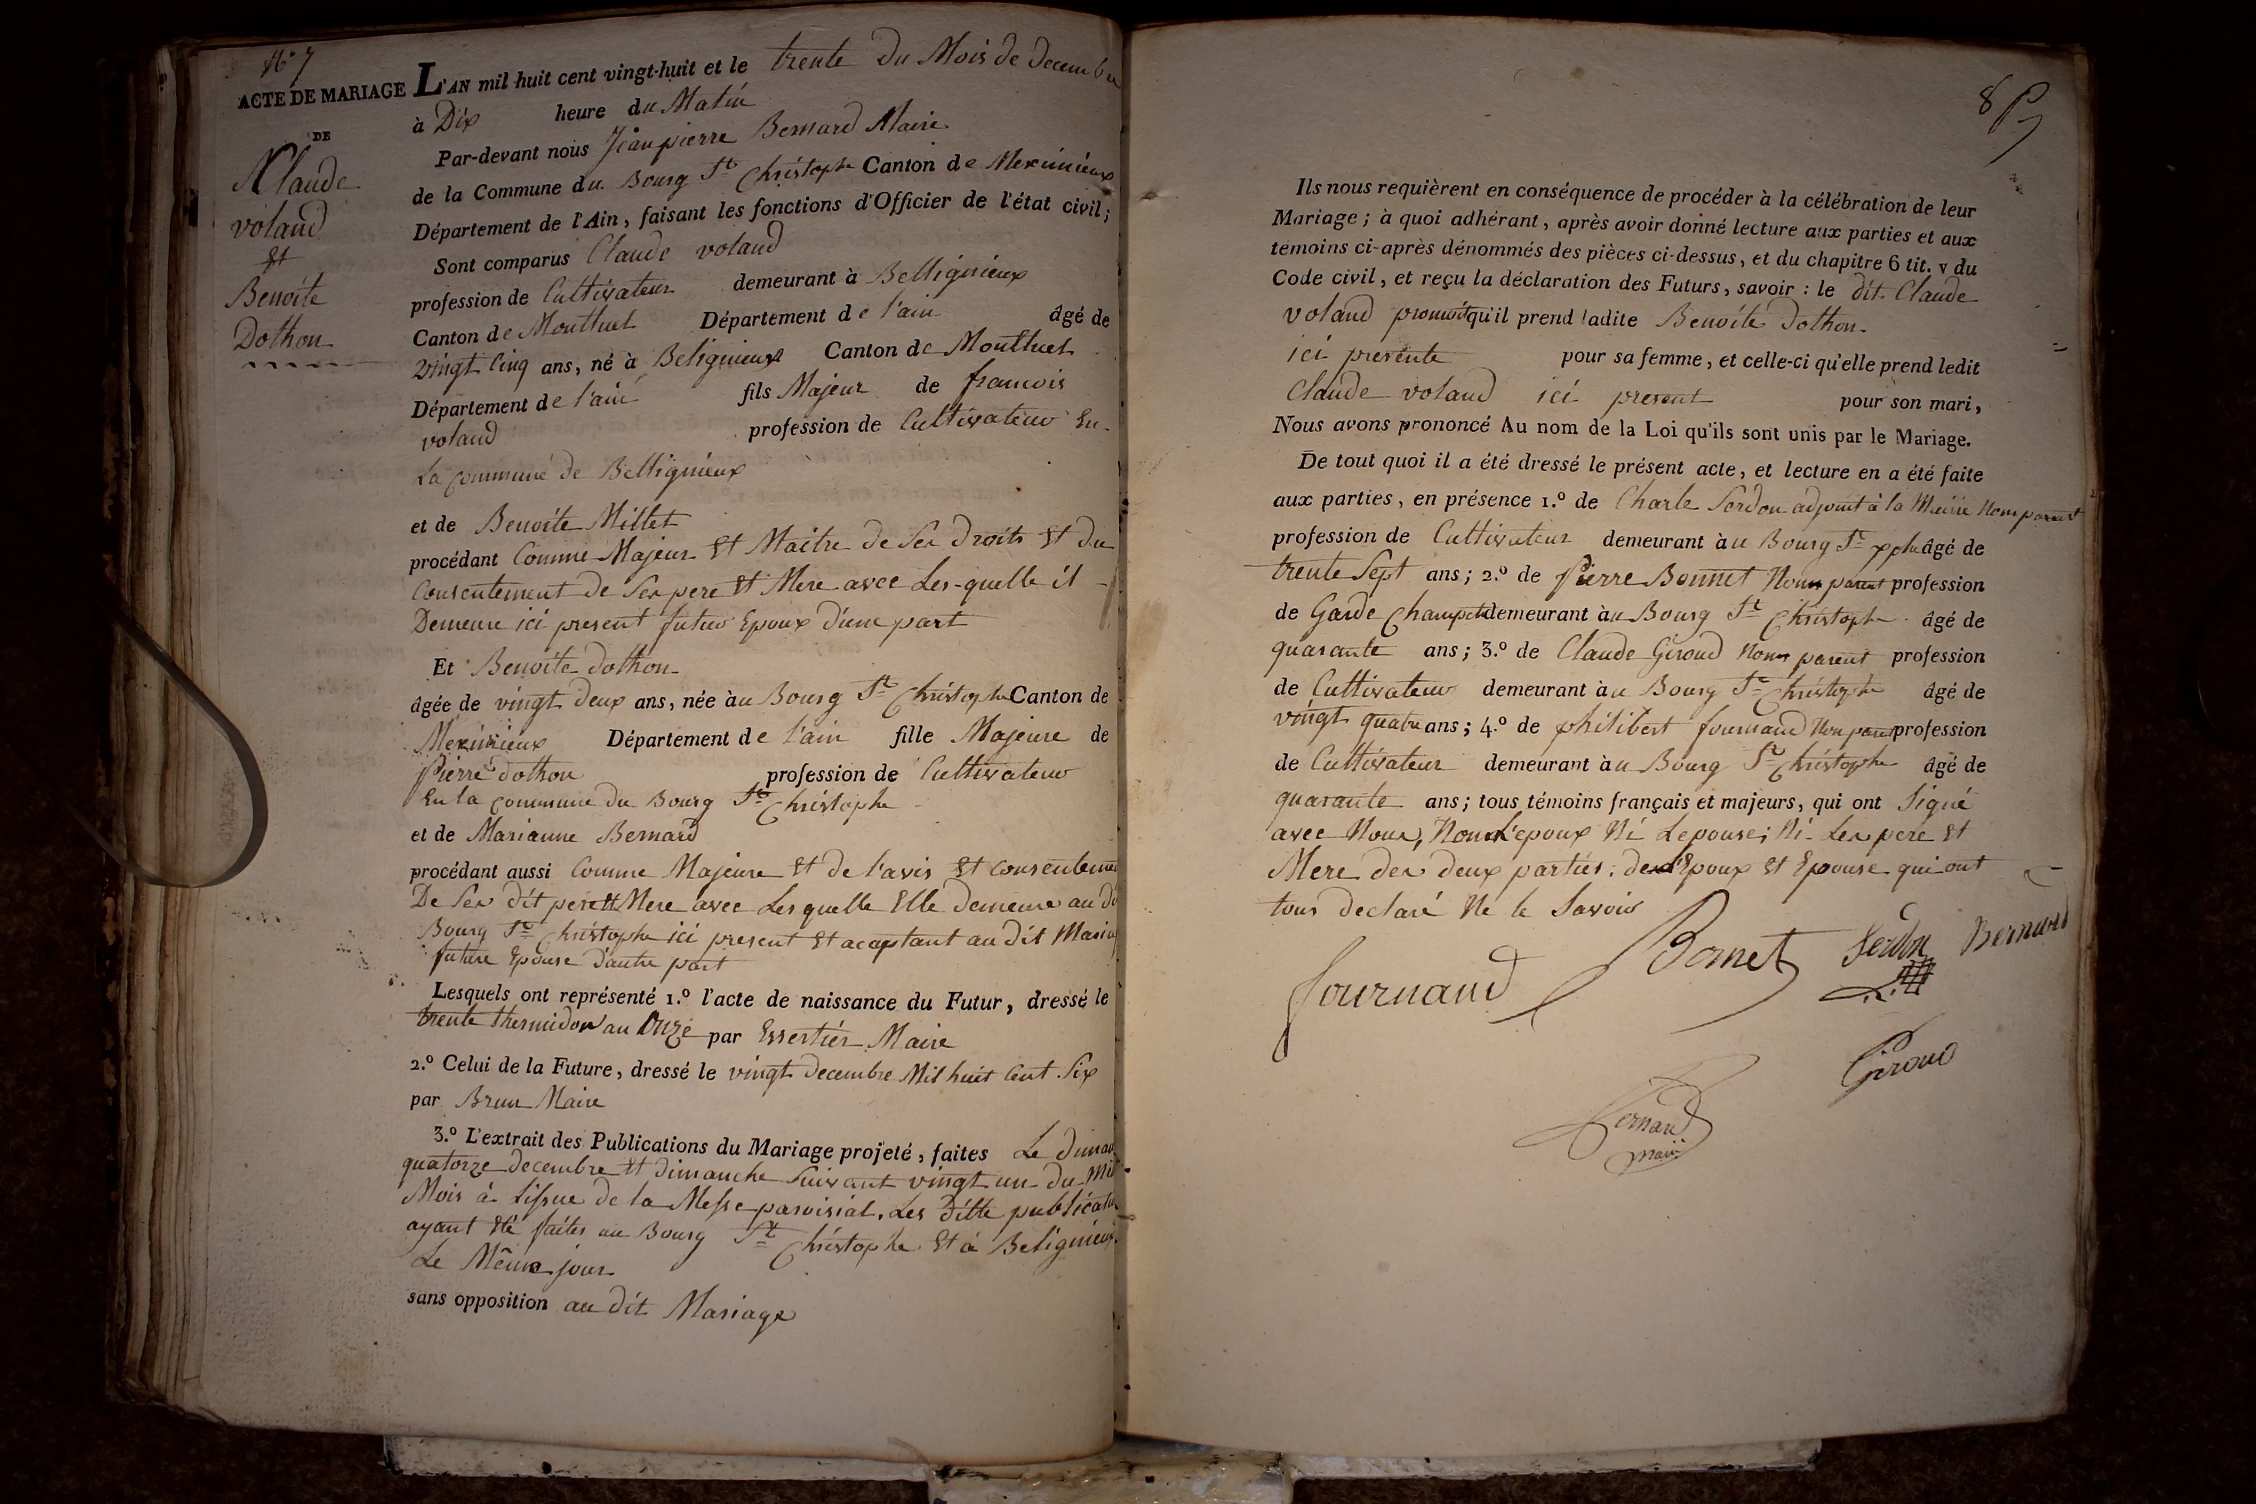 N° 7
ACTE DE MARIAGE
DE
Claude
voland
Et
Benoite
Dothon
L'AN mil huit cent vingt-huit et le trente du Mois de Decembre
à Dix heure du Matin
Par-devant nous Jeanpierre Bernard Maire
de la Commune du Bourg St Christophe Canton de Meximieux
Département de l'Ain, faisant les fonctions d'Officier de l'état civil;
Sont comparus Claude voland
profession de Cultivateur demeurant à Bellignieux
Canton de Montluel Département de l'ain âgé de
vingt Cinq ans, né à Belignieux Canton de Montluel
Département de l'ain fils Majeur de francois
voland profession de Cultivateur En
La commune de Bellignieux
et de Benoite Millet
procédant Comme Majeur Et Maitre de Ses droits Et du
Consentement de Ses pere Et Mere avec Les-quelle il
Demeure ici present futur Epoux d'une part
Et Benoite dothon
âgée de vingt deux ans, née au Bourg St Christophe Canton de
Meximieux Département de l'ain fille Majeure de
Pierre dothon profession de Cultivateur
En la commune du Bourg St Christophe
et de Marianne Bernard
procédant aussi Comme Majeure Et de l'avis Et consenteme
De Ses dit pere Et Mere avec Les quelle Elle demeure au d
Bourg St Christophe ici present Et acaptant au dit Maria
future Epouse d'autre part
Lesquels ont représenté 1.º l'acte de naissance du Futur, dressé le
trente thermidor an Onze par Essertier Maire
2.º Celui de la Future, dressé le vingt decembre Mil huit Cent Six
par Brun Maire
3.º L'extrait des Publications du Mariage projeté, faites Le diman
quatorze decembre Et dimanche Suivant vingt un du
Mois à L'issue de la Messe paroisial. Les ditte publicatio
ayant Eté faites au Bourg St Christophe Et à Belignieux
Le Même jour
sans opposition au dit Mariage
8
Ils nous requièrent en conséquence de procéder à la célébration de leur
Mariage; à quoi adhérant, après avoir donné lecture aux parties et aux
temoins ci-après dénommés des pièces ci-dessus, et du chapitre 6 tit. v du
Code civil, et reçu la déclaration des Futurs, savoir: le dit Claude
voland qu'il prend ladite Benoite dothon
ici presente pour sa femme, et celle-ci qu'elle prend ledit
Claude voland ici present pour son mari,
Nous avons prononcé Au nom de la Loi qu'ils sont unis par le Mariage.
De tout quoi il a été dressé le présent acte, et lecture en a été faite
aux parties, en présence 1.º de Charle Serdon adjoint à la Mairie Non parent
profession de Cultivateur demeurant au Bourg St xphe âgé de
trente Sept ans; 2.º de Pierre Bonnet Non parent profession
de Garde Champete demeurant au Bourg St Christophe âgé de
quarante ans; 3.º de Claude Giroud Non parent profession
de Cultivateur demeurant au Bourg St Christophe âgé de
vingt quatre ans; 4.º de philibert fournand Non parent profession
de Cultivateur demeurant au Bourg St Christophe âgé de
quarante ans; tous témoins français et majeurs, qui ont Signé
avec Nous, Non L'epoux Ni Lepouse; Ni Les pere Et
Mere des deux parties; de l'Epoux Et Epouse qui ont
tous declaré Ne le Savoir
fournand Bonet Serdon Bernard
Giroud
Bernard
maire